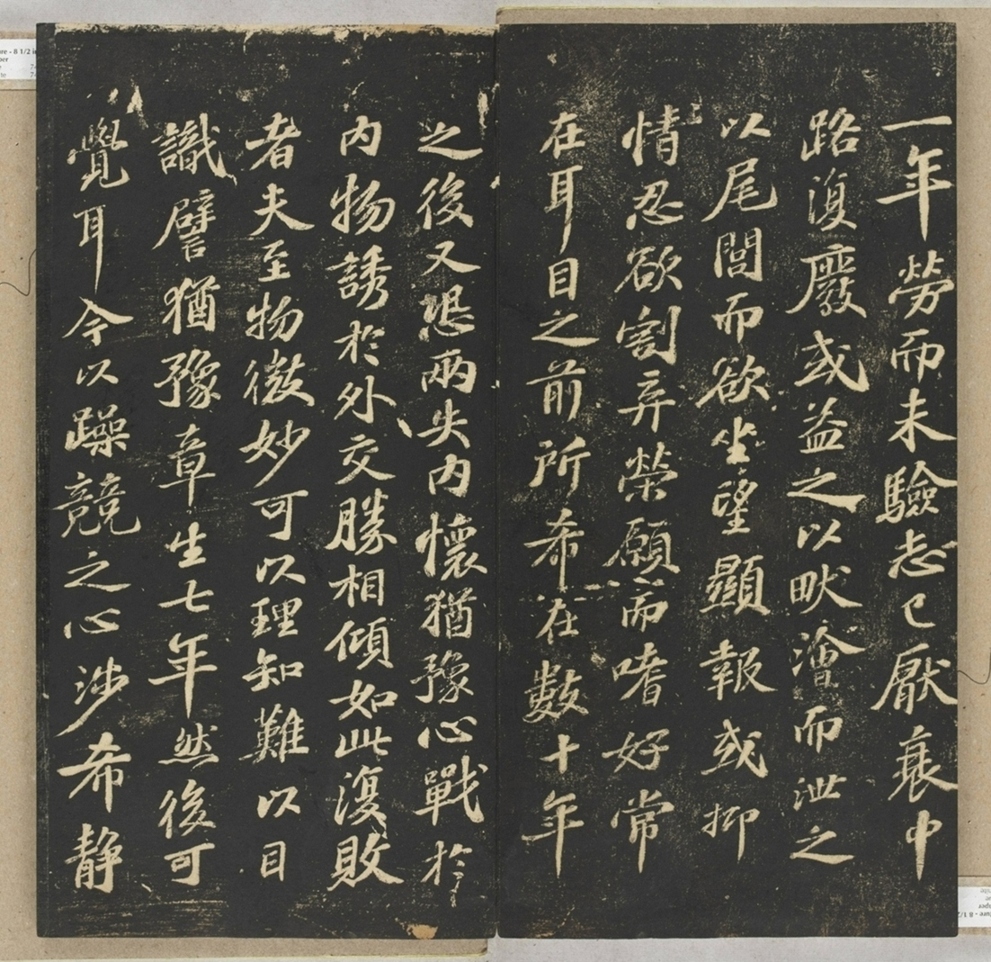 一年勞而未驗志已厭衰中
路復廢或益之以畎澮而泄之
以尾閭而欲坐望顯報或抑
情忍欲割弃榮願而嗜好常
在耳目之前所希在數十年
之後又恐兩失內懷猶豫心戰於
內物誘於外交勝相傾如此復敗
者夫至物微妙可以理知難以目
識譬猶豫章生七年然後可
覺耳今以躁競之心涉希靜